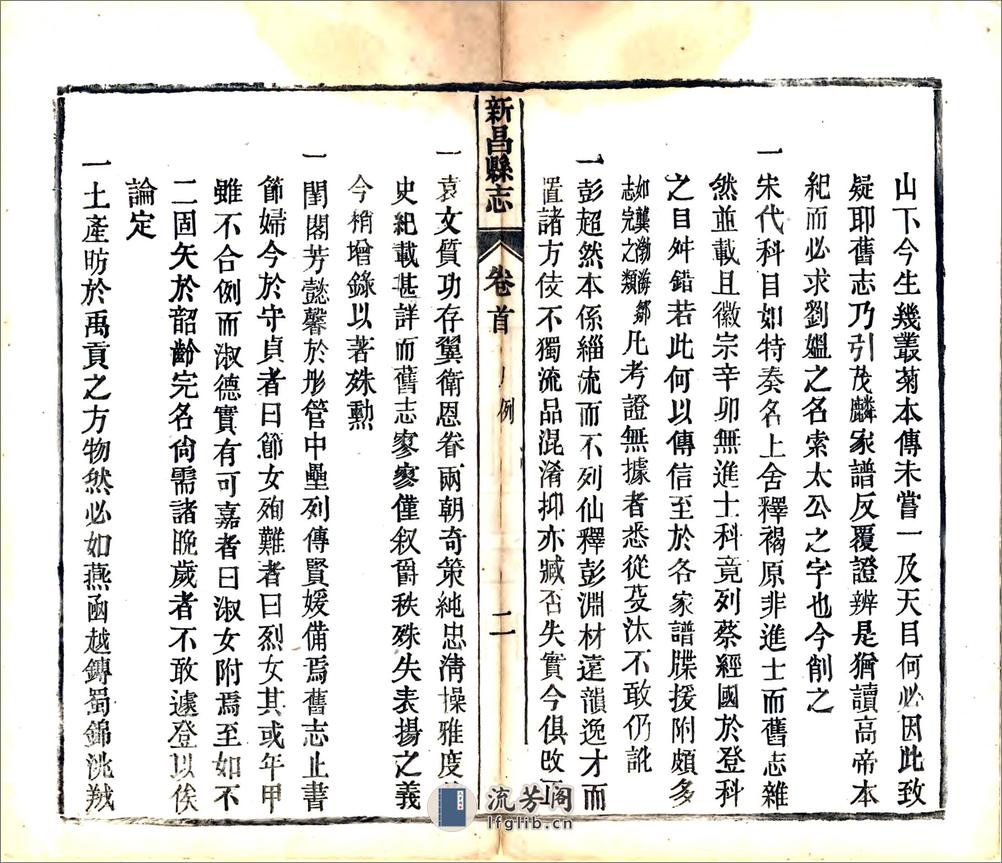 山下今生幾叢菊本傳未嘗一及天目何必因此致
疑耶舊志乃引茂麟家譜反覆證辨是猶讀高帝本
紀而必求劉媼之名索太公之字也今削之
一宋代科目如特奏名上舍釋褐原非進士而舊志雜
然並載且徽宗辛卯無進士科竟列蔡經國於登科
之目舛錯若此何以傳信至於各家譜牒援附頗多
如龔渤海鄒志完之類凡考證無據者悉從芟汰不敢仍訛
一彭超然本係緇流而不列仙釋彭淵材遠韻逸才而
置諸方伎不獨流品混淆抑亦臧否失實今俱改正
新昌縣志
卷首
例
二
一袁文質功存翼衛恩眷兩朝奇策純忠清操雅度
史紀載甚詳而舊志寥寥僅叙爵秩殊失表揚之義
今稍增錄以著殊勳
一閨閣芳懿馨於彤管中壘列傳賢媛備焉舊志止書
節婦今於守貞者曰節女殉難者曰烈女其或年甲
雖不合例而淑德實有可嘉者曰淑女附焉至如不
二固矢於韶齡完名尙需諸晚歲者不敢遽登以俟
論定
一土產昉於禹貢之方物然必如燕函越鏄蜀錦洮羢
流芳阁
lfglib.cn